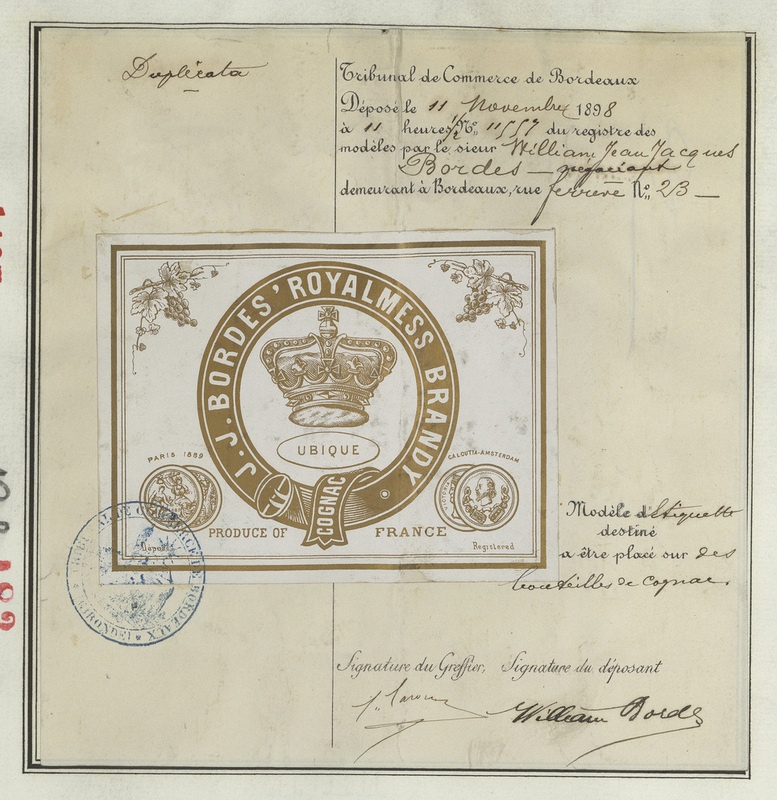 Duplicata
Tribunal de Commerce de Bordeaux
Déposé le 11 Novembre 1898
à 11 heures 1/2 N° 11557 du registre des
modèles par le sieur William Jean Jacques
Bordes — négociant
demeurant à Bordeaux, rue ferrère N° 23 —
J. J. BORDES' ROYAL MESS BRANDY
UBIQUE
COGNAC
PARIS 1889
CALCUTTA-AMSTERDAM
PRODUCE OF FRANCE
Déposé
Registered
TRIBUNAL DE COMMERCE DE BORDEAUX
(GIRONDE)
Modèle d'Etiquette
destiné
a être placé sur des
bouteilles de Cognac.
Signature du Greffier, Signature du déposant
William Bordes